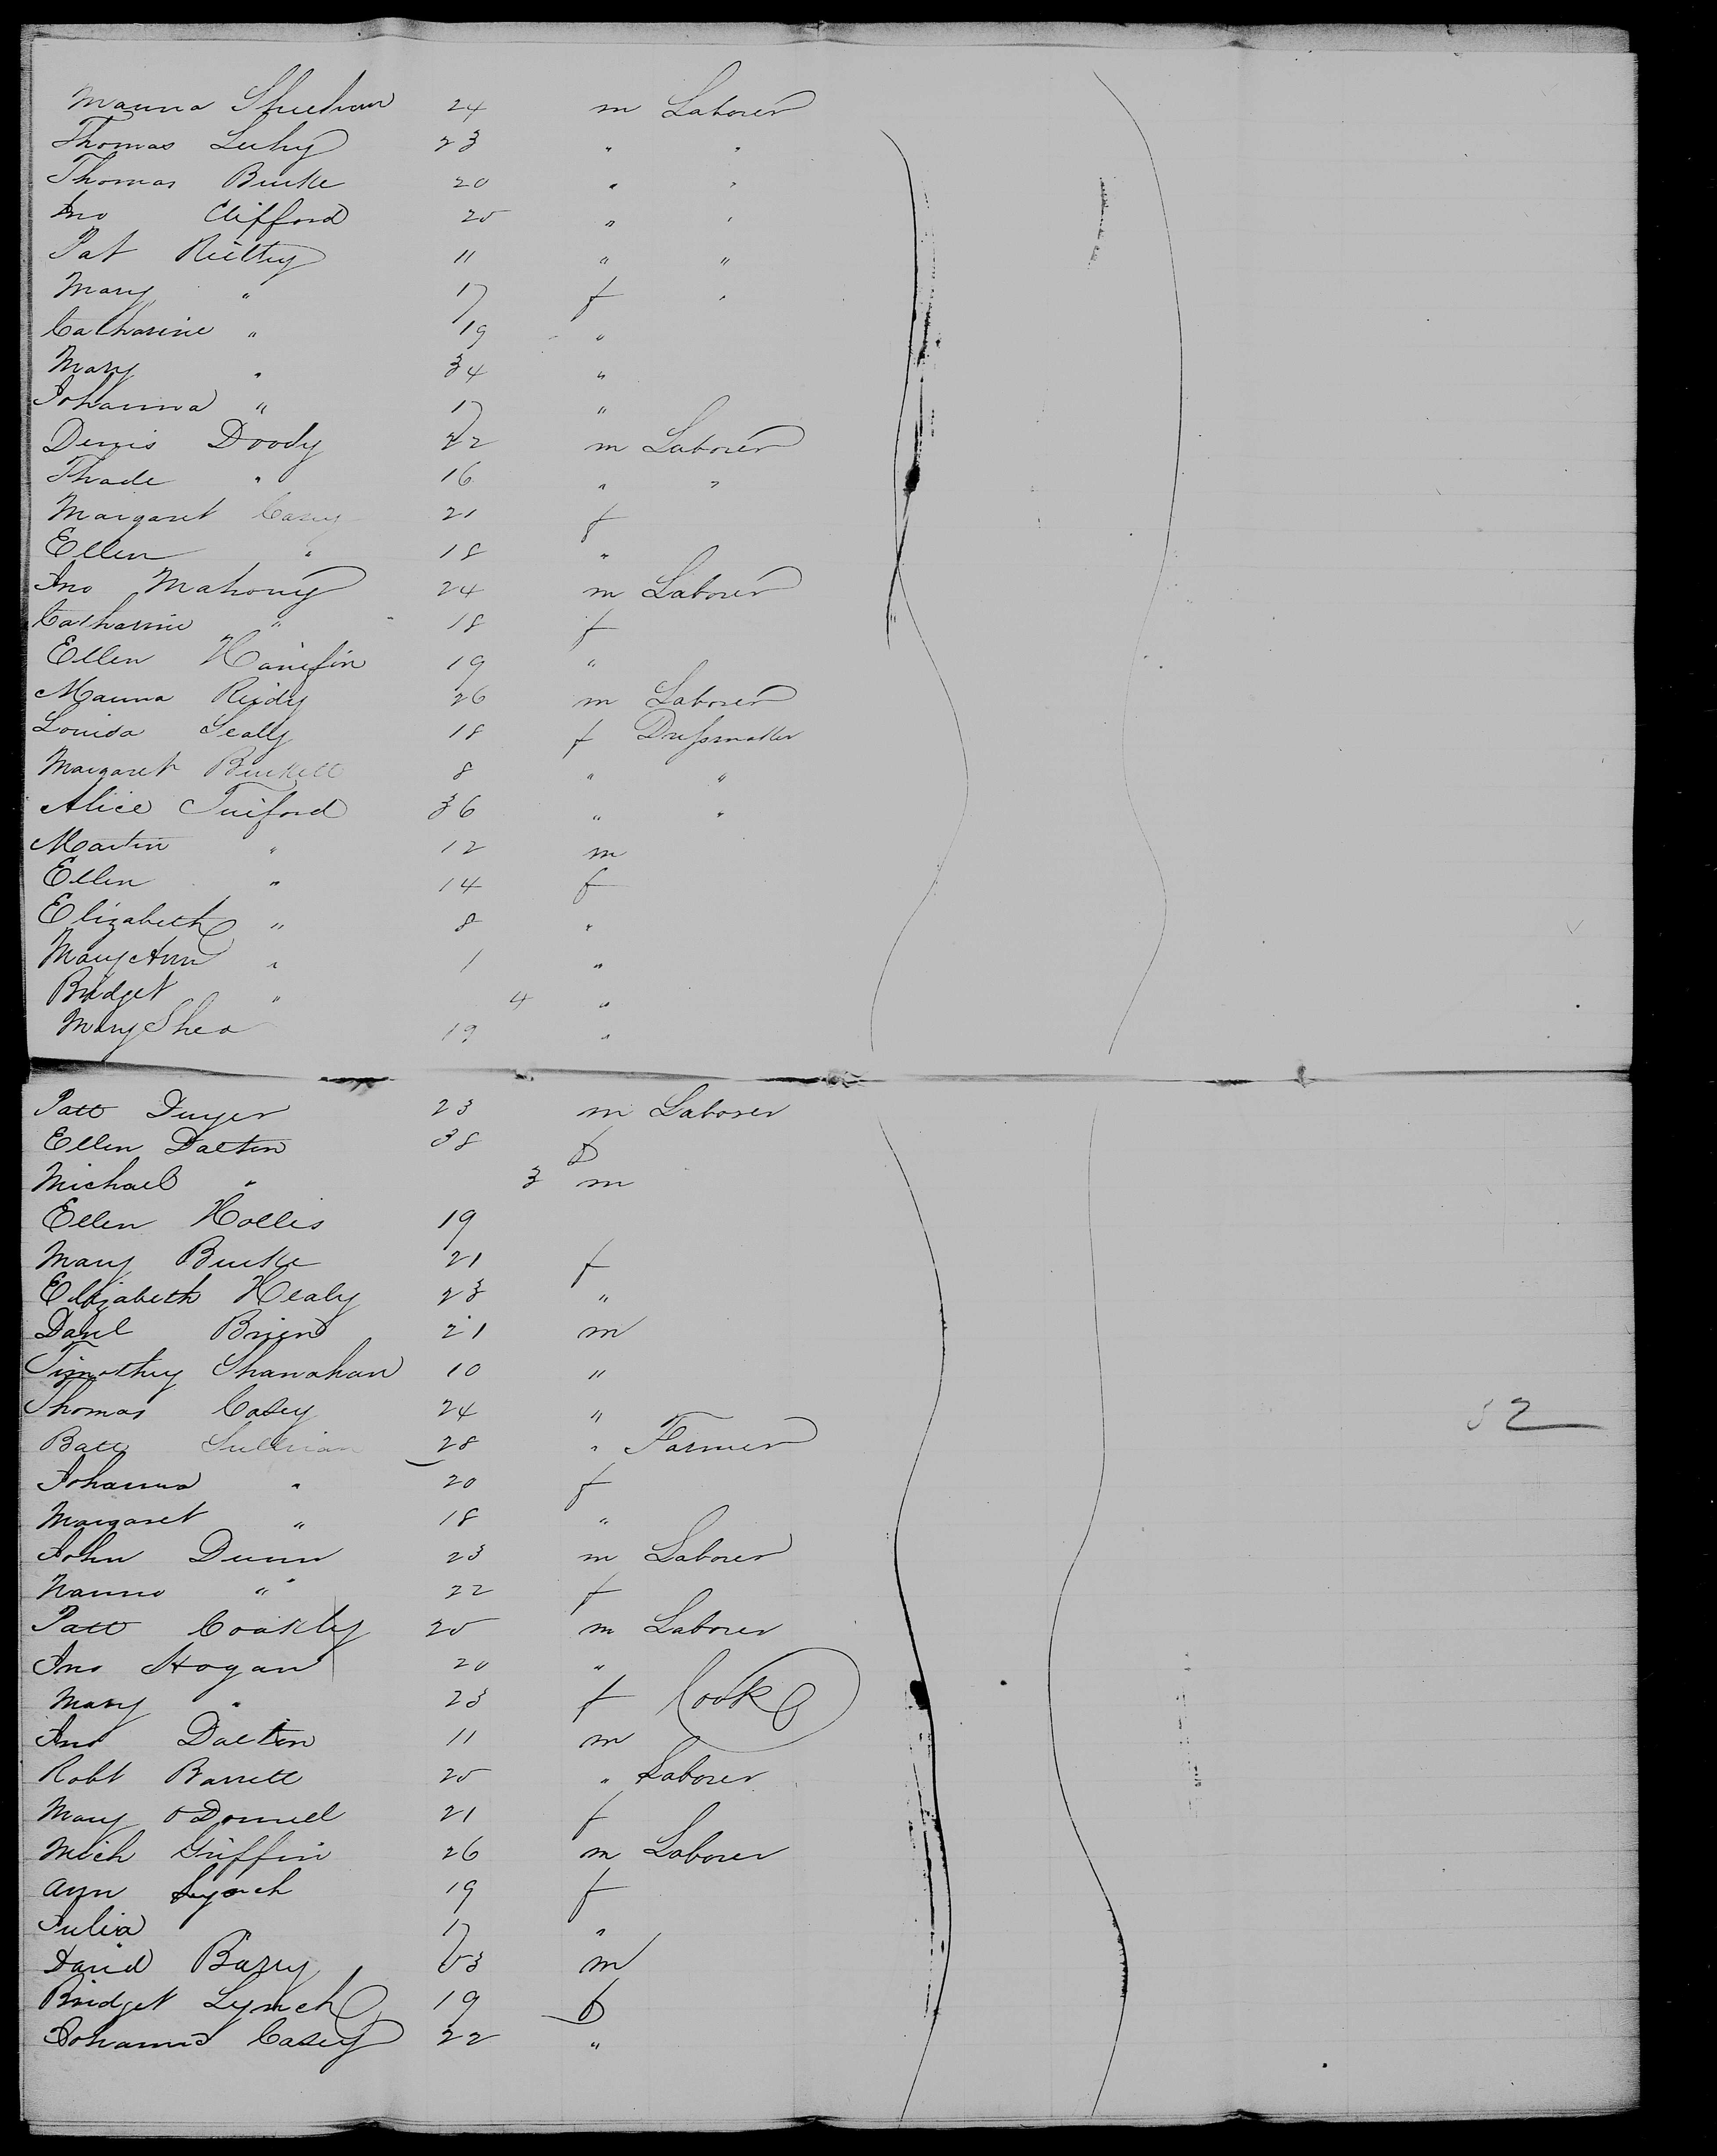 Mauna Sheehan 24 m Laborer
Thomas Luhy 23 " "
Thomas Burke 20 " "
Jno Clifford 25 " "
Pat 11 " "
Mary " 17 f "
Catharine " 19 "
Mary " 34 "
Johanna " 17 "
Denis Doody 22 m Laborer
Thade " 16 " "
Margaret Casey 21 f
Ellen " 18 "
Jno Mahony 24 m Laborer
Catharine " 18 f
Ellen Hanifin 19 "
Mauna Reidy 26 m Laborer
Louisa Scally 18 f Dressmaker
Margaret 8 " "
Alice 36 " "
Martin " 12 m
Ellen " 14 f
Elizabeth " 8 "
Mary Ann " 1 "
Bridget " 4 "
Mary Shea 19 "
Patt Dwyer 23 m Laborer
Ellen Dalton 38 f
Michael " 3 m
Ellen Hollis 19
Mary Burke 21 f
Elizabeth Healy 23 "
Danl Brien 21 m
Timothy Shanahan 10 "
Thomas Casey 24 "
Batt Sullivan 28 " Farmer
Johanna " 20 f
Margaret " 18 "
John Dunn 23 m Laborer
Nanno " 22 f
Patt Coakly 25 m Laborer
Jno Hogan 20 "
Mary " 23 f Cook
Jno Dalton 11 m
Robt Barrett 25 " Laborer
Mary O Donnell 21 f
Mich Griffin 26 m Laborer
Ann Lynch 19 f
Julia " 17 "
David Barry 53 m
Bridget Lynch 19 f
Johanna Casey 22 "
52